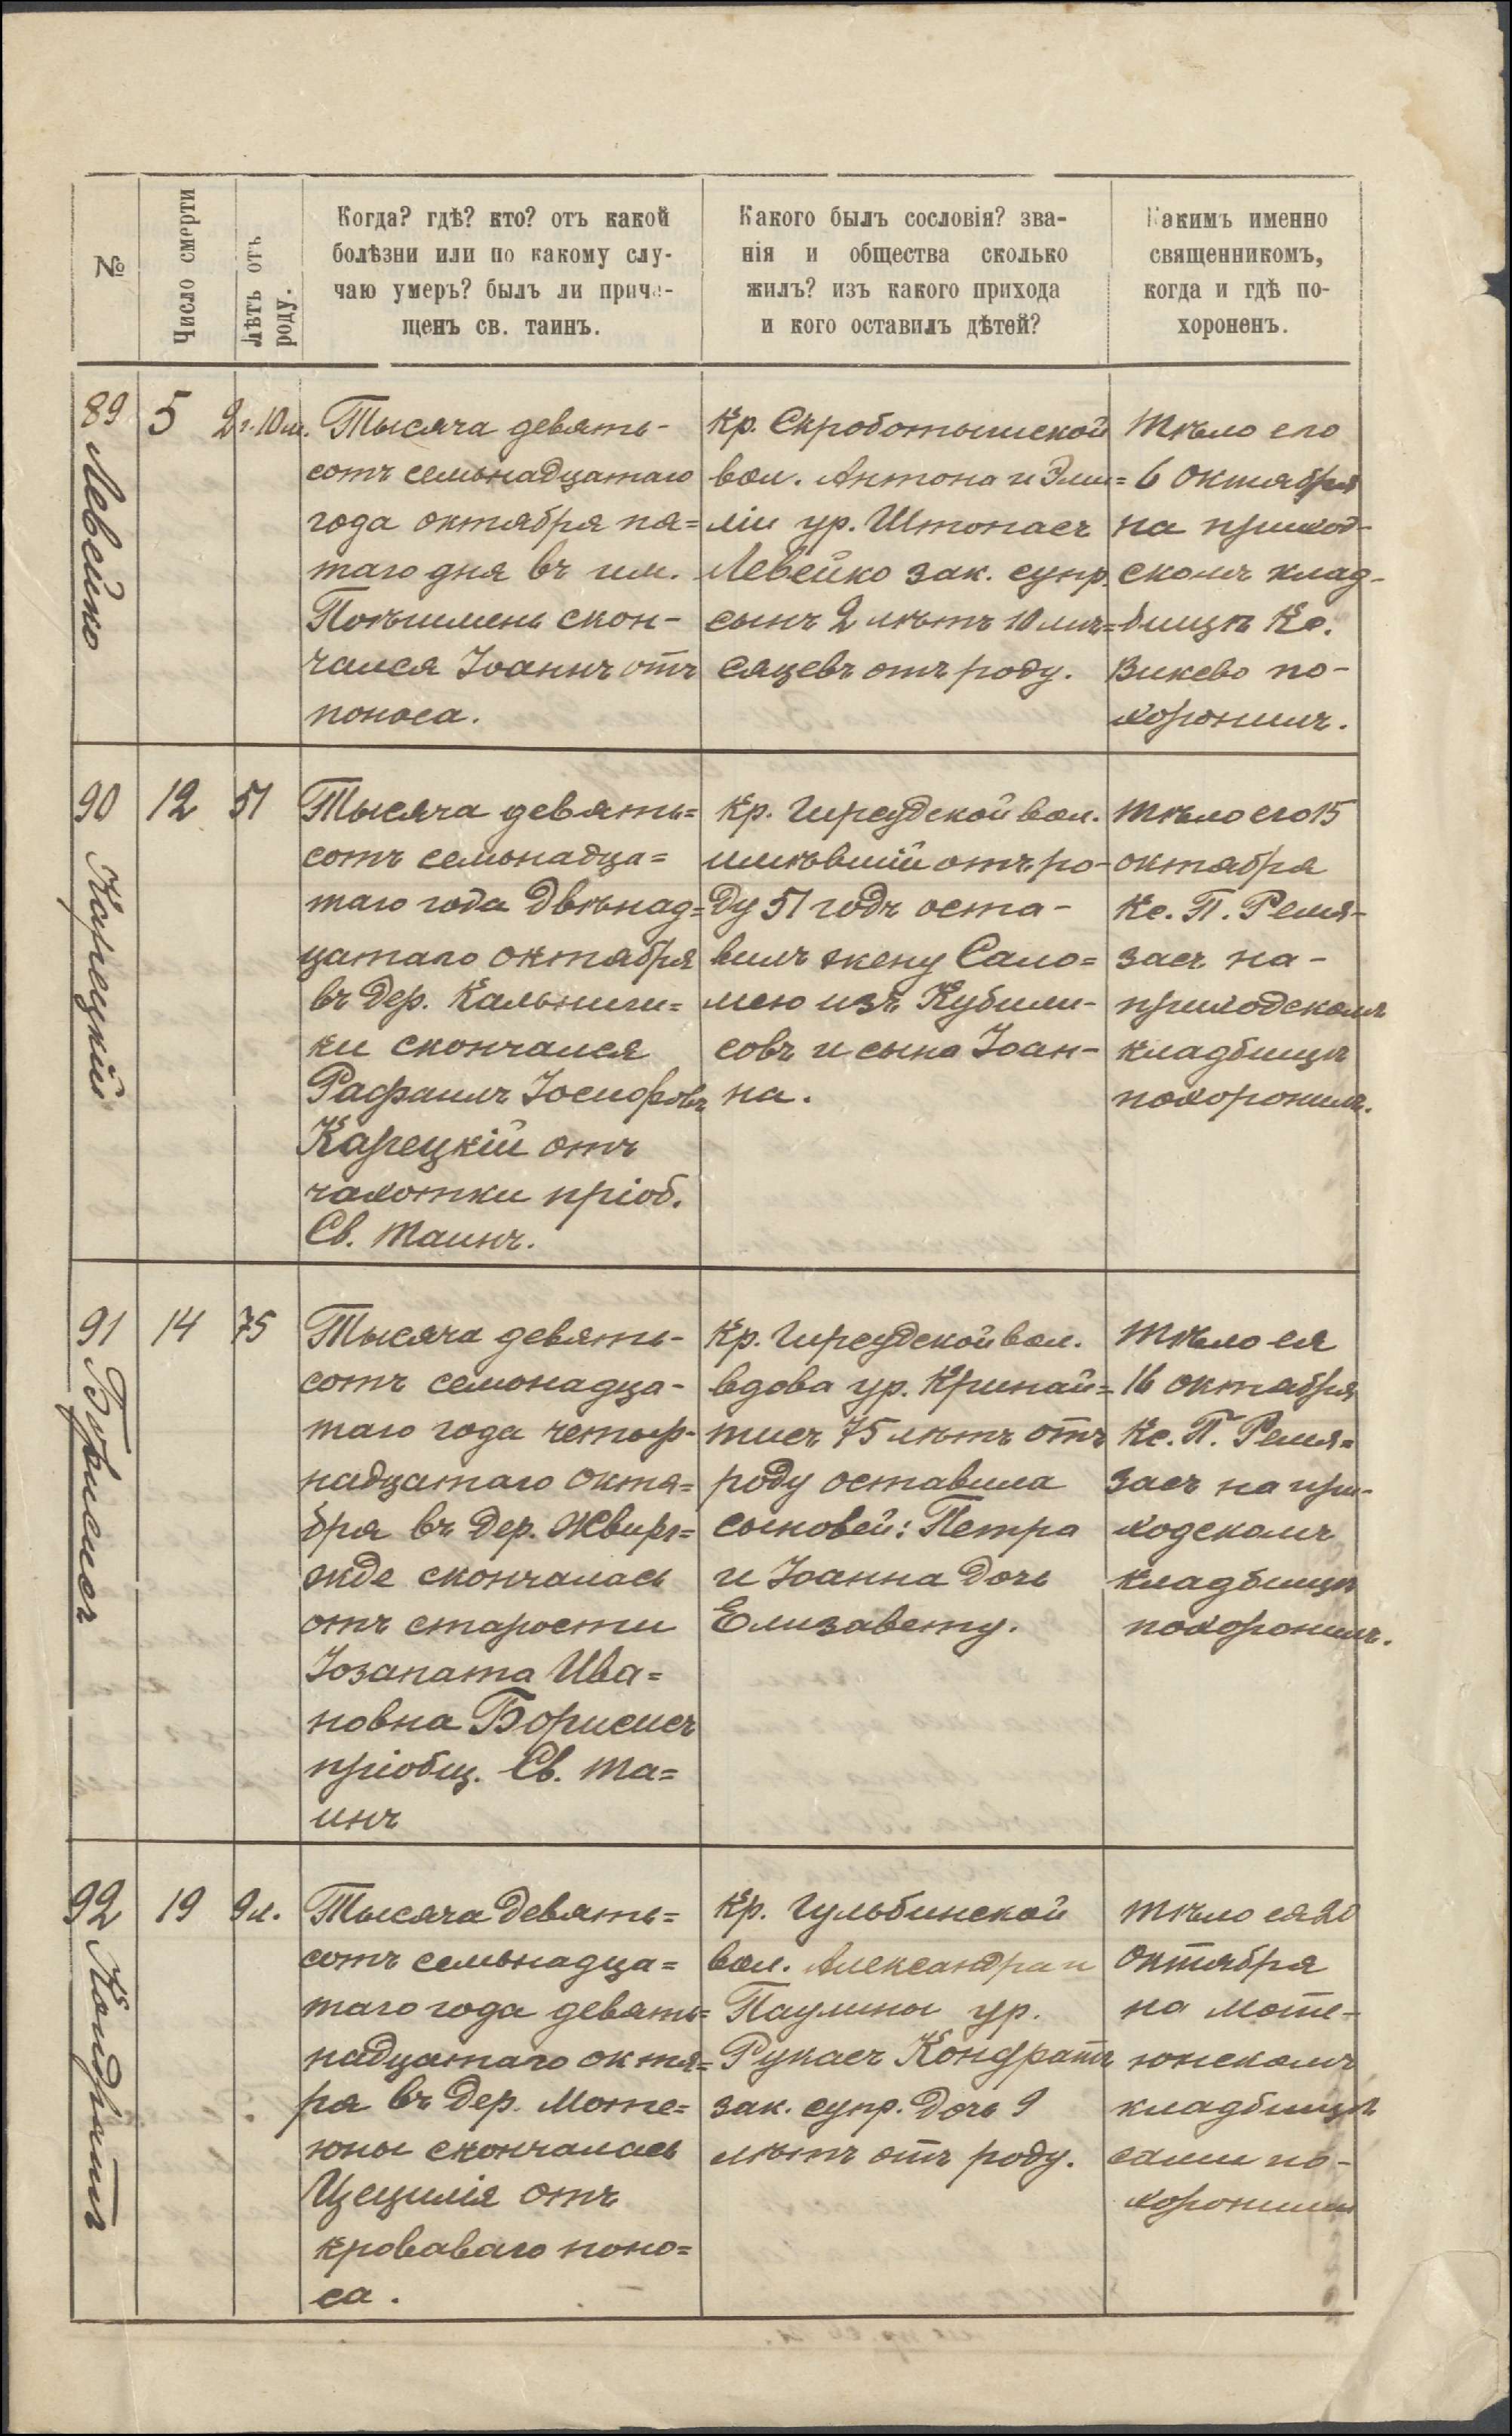 №
Число смерти
лѣтъ отъ
роду.
Когда? гдѣ? кто? отъ какой
болѣзни или по какому слу-
чаю умеръ? былъ ли прича-
щенъ св. таинъ.
Какого былъ сословія? зва-
нія и общества сколько
жилъ? изъ какого прихода
и кого оставилъ дѣтей?
Какимъ именно
священникомъ,
когда и гдѣ по-
хороненъ.
89
Левейко
5
2г. 10 м.
Тысяча девять-
сотъ семьнадцатаго
года октября пя=
таго дня въ им.
скон-
чался Іоаннъ отъ
поноса.
Кр. Скроботышской
вол. Антона и Эми=
ліи ур. Штопасъ
Левейко зак. супр.
сынъ 2 лѣтъ 10 мѣ=
сяцевъ отъ роду.
Тѣло его
6 Октября
на приход-
скомъ клад-
бищѣ Кс.
Викево по-
хоронилъ.
90
Карецкій
12
51
Тысяча девять=
сотъ семьнадца=
таго года двѣнад=
цатаго октября
въ дер. Кальниш=
ки скончался
Рафаилъ Іосифовъ
Карецкій отъ
чахотки пріоб.
Св. Таинъ.
Кр. Гиреудской вол.
имѣвшій отъ ро-
ду 51 годъ оста-
вилъ жену Сало=
мею изъ Кубили-
совъ и сына Іоан-
на.
Тѣло его 15
октября
Кс. П. Ремя-
засъ на-
приходскомъ
кладбищѣ
похоронилъ.
91
Борисисъ
14
75
Тысяча девять-
сотъ семьнадца-
таго года четыр-
надцатаго октя=
бря въ дер. Жвир=
жде скончалась
отъ старости
Іозапата Ива=
новна Борисисъ
пріобщ. Св. Та=
инъ
Кр. Гиреудской вол.
вдова ур. Кринай=
тисъ 75 лѣтъ отъ
роду оставила
сыновей: Петра
и Іоанна дочь
Елизавету.
Тѣло ея
16 октября
Кс. П. Ремя=
засъ на при-
ходскомъ
кладбищѣ
похоронилъ.
92
Кондратъ
19
9 л.
Тысяча девять=
сотъ семьнадца=
таго года девять=
надцатаго октя=
ря въ дер. Моте=
юны скончалась
Цецилія отъ
кроваваго поно=
са.
Кр. Гульбинской
вол. Александра и
Паулины ур.
Рупасъ Кондратъ
зак. супр. дочь 9
лѣтъ отъ роду.
Тѣло ея 20
Октября
на Моте-
юнскомъ
кладбищѣ
сами по-
хоронили